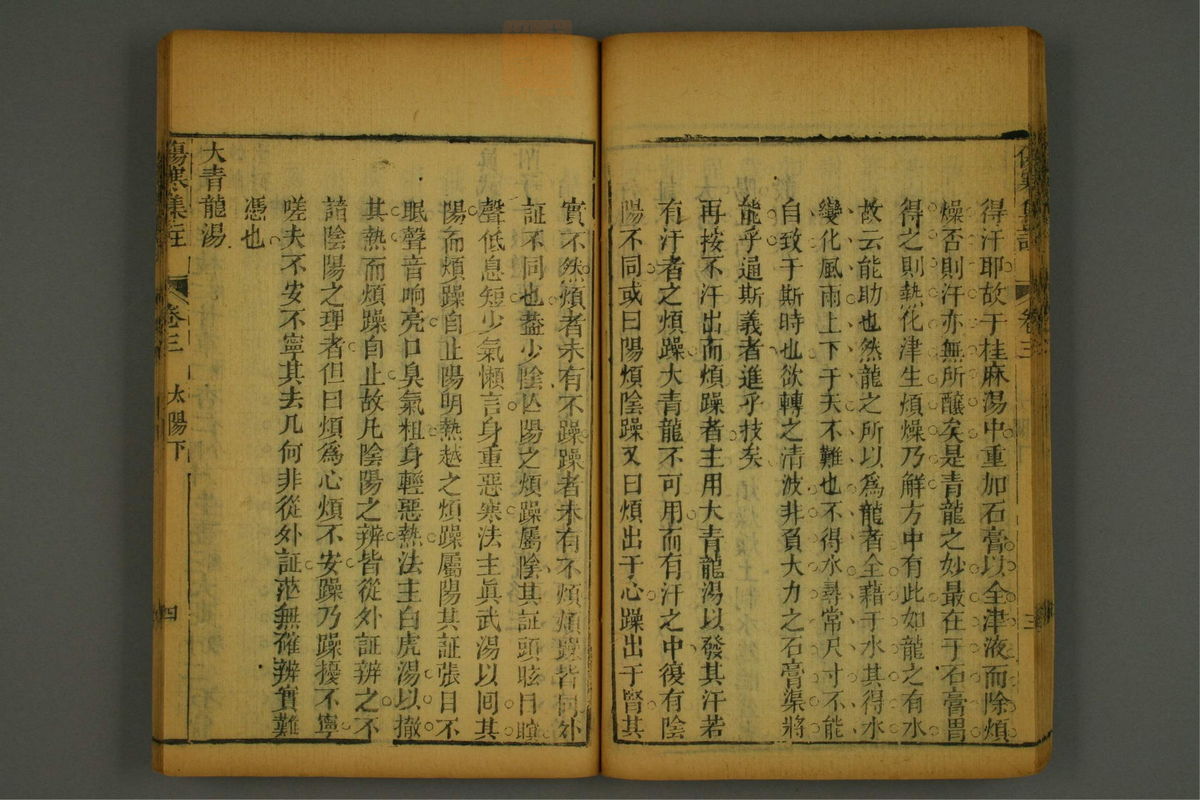 傷寒集註
卷三
三
得汗耶故于桂麻湯中重加石膏以全津液而除煩
燥否則汗亦無所釀矣是青龍之妙最在于石膏胃
得之則熱化津生煩燥乃解方中有此如龍之有水
故云能助也然龍之所以爲龍者全藉于水其得水
變化風雨上下于天不難也不得水尋常尺寸不能
自致于斯時也欲轉之清波非負大力之石膏渠將
能乎通斯義者進乎技矣
再按不汗出而煩躁者主用大青龍湯以發其汗若
有汗者之煩躁大青龍不可用而有汗之中復有陰
陽不同或曰陽煩陰躁又曰煩出于心躁出于腎其
實不然煩者未有不躁躁者未有不煩煩躁皆同外
証不同也蓋少陰亾陽之煩躁屬陰其証頭眩目瞑
聲低息短少氣懶言身重惡寒法主眞武湯以囘其
陽而煩躁自止陽明熱越之煩躁屬陽其証張目不
眠聲音响亮口臭氣粗身輕惡熱法主白虎湯以撤
其熱而煩躁自止故凡陰陽之辨皆從外証辨之不
諳陰陽之理者但曰煩爲心煩不安躁乃躁擾不寧
嗟夫不安不寧其去几何非從外証茫無確辨實難
憑也
大青龍湯
傷寒集註
卷三
太陽下
四